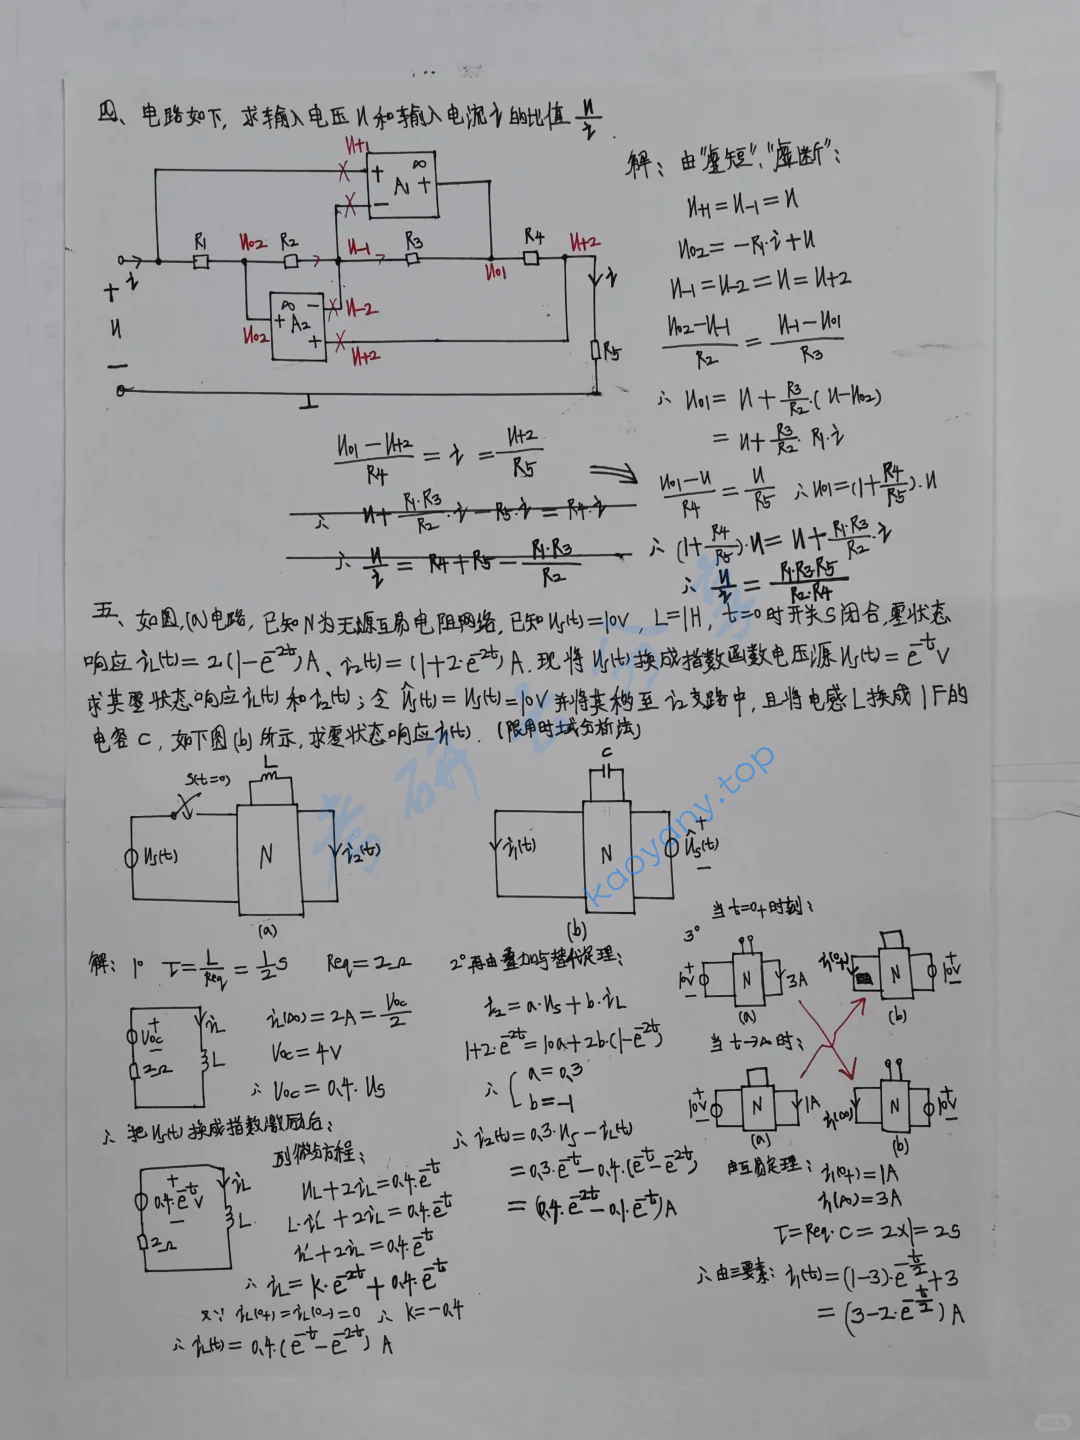 四、电路如下,求输入电压u和输入电流i的比值 u/i.
解:由"虚短"、"虚断":
u+1 = u-1 = u
uo2 = -R1·i+u
u-1 = u-2 = u = u+2
(uo2-u-1)/R2 = (u-1-uo1)/R3
∴ uo1 = u + R3/R2·(u-uo2)
= u + R3/R2·R1·i
u+1
+ ∞
A1 +
-
R1 uo2 R2 u-1 R3 uo1 R4 u+2
i
+
u
-
∞ -
+ A2
+
uo2
u-2
u+2
i
R5
(uo1-u+2)/R4 = i = u+2/R5
∴ u + R1·R3/R2·i - R5·i = R4·i
∴ u/i = R4+R5 - R1·R3/R2
(uo1-u)/R4 = u/R5 ∴ uo1 = (1+R4/R5)·u
∴ (1+R4/R5)·u = u + R1·R3/R2·i
∴ u/i = R1·R3·R5/R2·R4
五、如图,(a)电路,已知N为无源互易电阻网络,已知us(t)=10V, L=1H, t=0时开关S闭合,零状态
响应iL(t)=2(1-e^-2t)A、i2(t)=(1+2·e^-2t)A.现将us(t)换成指数函数电压源us(t)=e^-t V
求其零状态响应iL(t)和i2(t);令ûs(t)=us(t)=10V并将其移至i2支路中,且将电感L换成1F的
电容C,如下图(b)所示,求零状态响应i1(t).(限用时域分析法)
S(t=0)
L
us(t)
N
i2(t)
(a)
C
i1(t)
N
+
ûs(t)
-
(b)
解: 1° τ = L/Req = 1/2 s Req=2Ω
+
Uoc
-
2Ω
iL
L
iL(∞)=2A = Uoc/2
Uoc=4V
∴ Uoc=0.4·us
∴把us(t)换成指数激励后:
列微分方程:
+
0.4·e^-t V
-
2Ω
iL
L
uL+2iL=0.4·e^-t
L·iL'+2iL=0.4·e^-t
iL'+2iL=0.4·e^-t
∴ iL=K·e^-2t+0.4·e^-t
又∵ iL(0+)=iL(0-)=0 ∴ K=-0.4
∴ iL(t)=0.4·(e^-t-e^-2t) A
2°再由叠加与替代定理:
i2=a·us+b·iL
1+2·e^-2t=10a+2b·(1-e^-2t)
∴ { a=0.3
b=-1
∴ i2(t)=0.3·us-iL(t)
=0.3·e^-t-0.4·(e^-t-e^-2t)
=(0.4·e^-2t-0.1·e^-t)A
3° 当t=0+时刻:
10V + - N 3A (a)
i1(0+) N + 10V - (b)
当t→∞时:
10V + - N 1A (a)
i1(∞) N + 10V - (b)
由互易定理: i1(0+)=1A
i1(∞)=3A
τ=Req·C=2×1=2s
∴由三要素: i1(t)=(1-3)·e^-t/2+3
=(3-2·e^-t/2)A
考研云分享
kaoyany.top